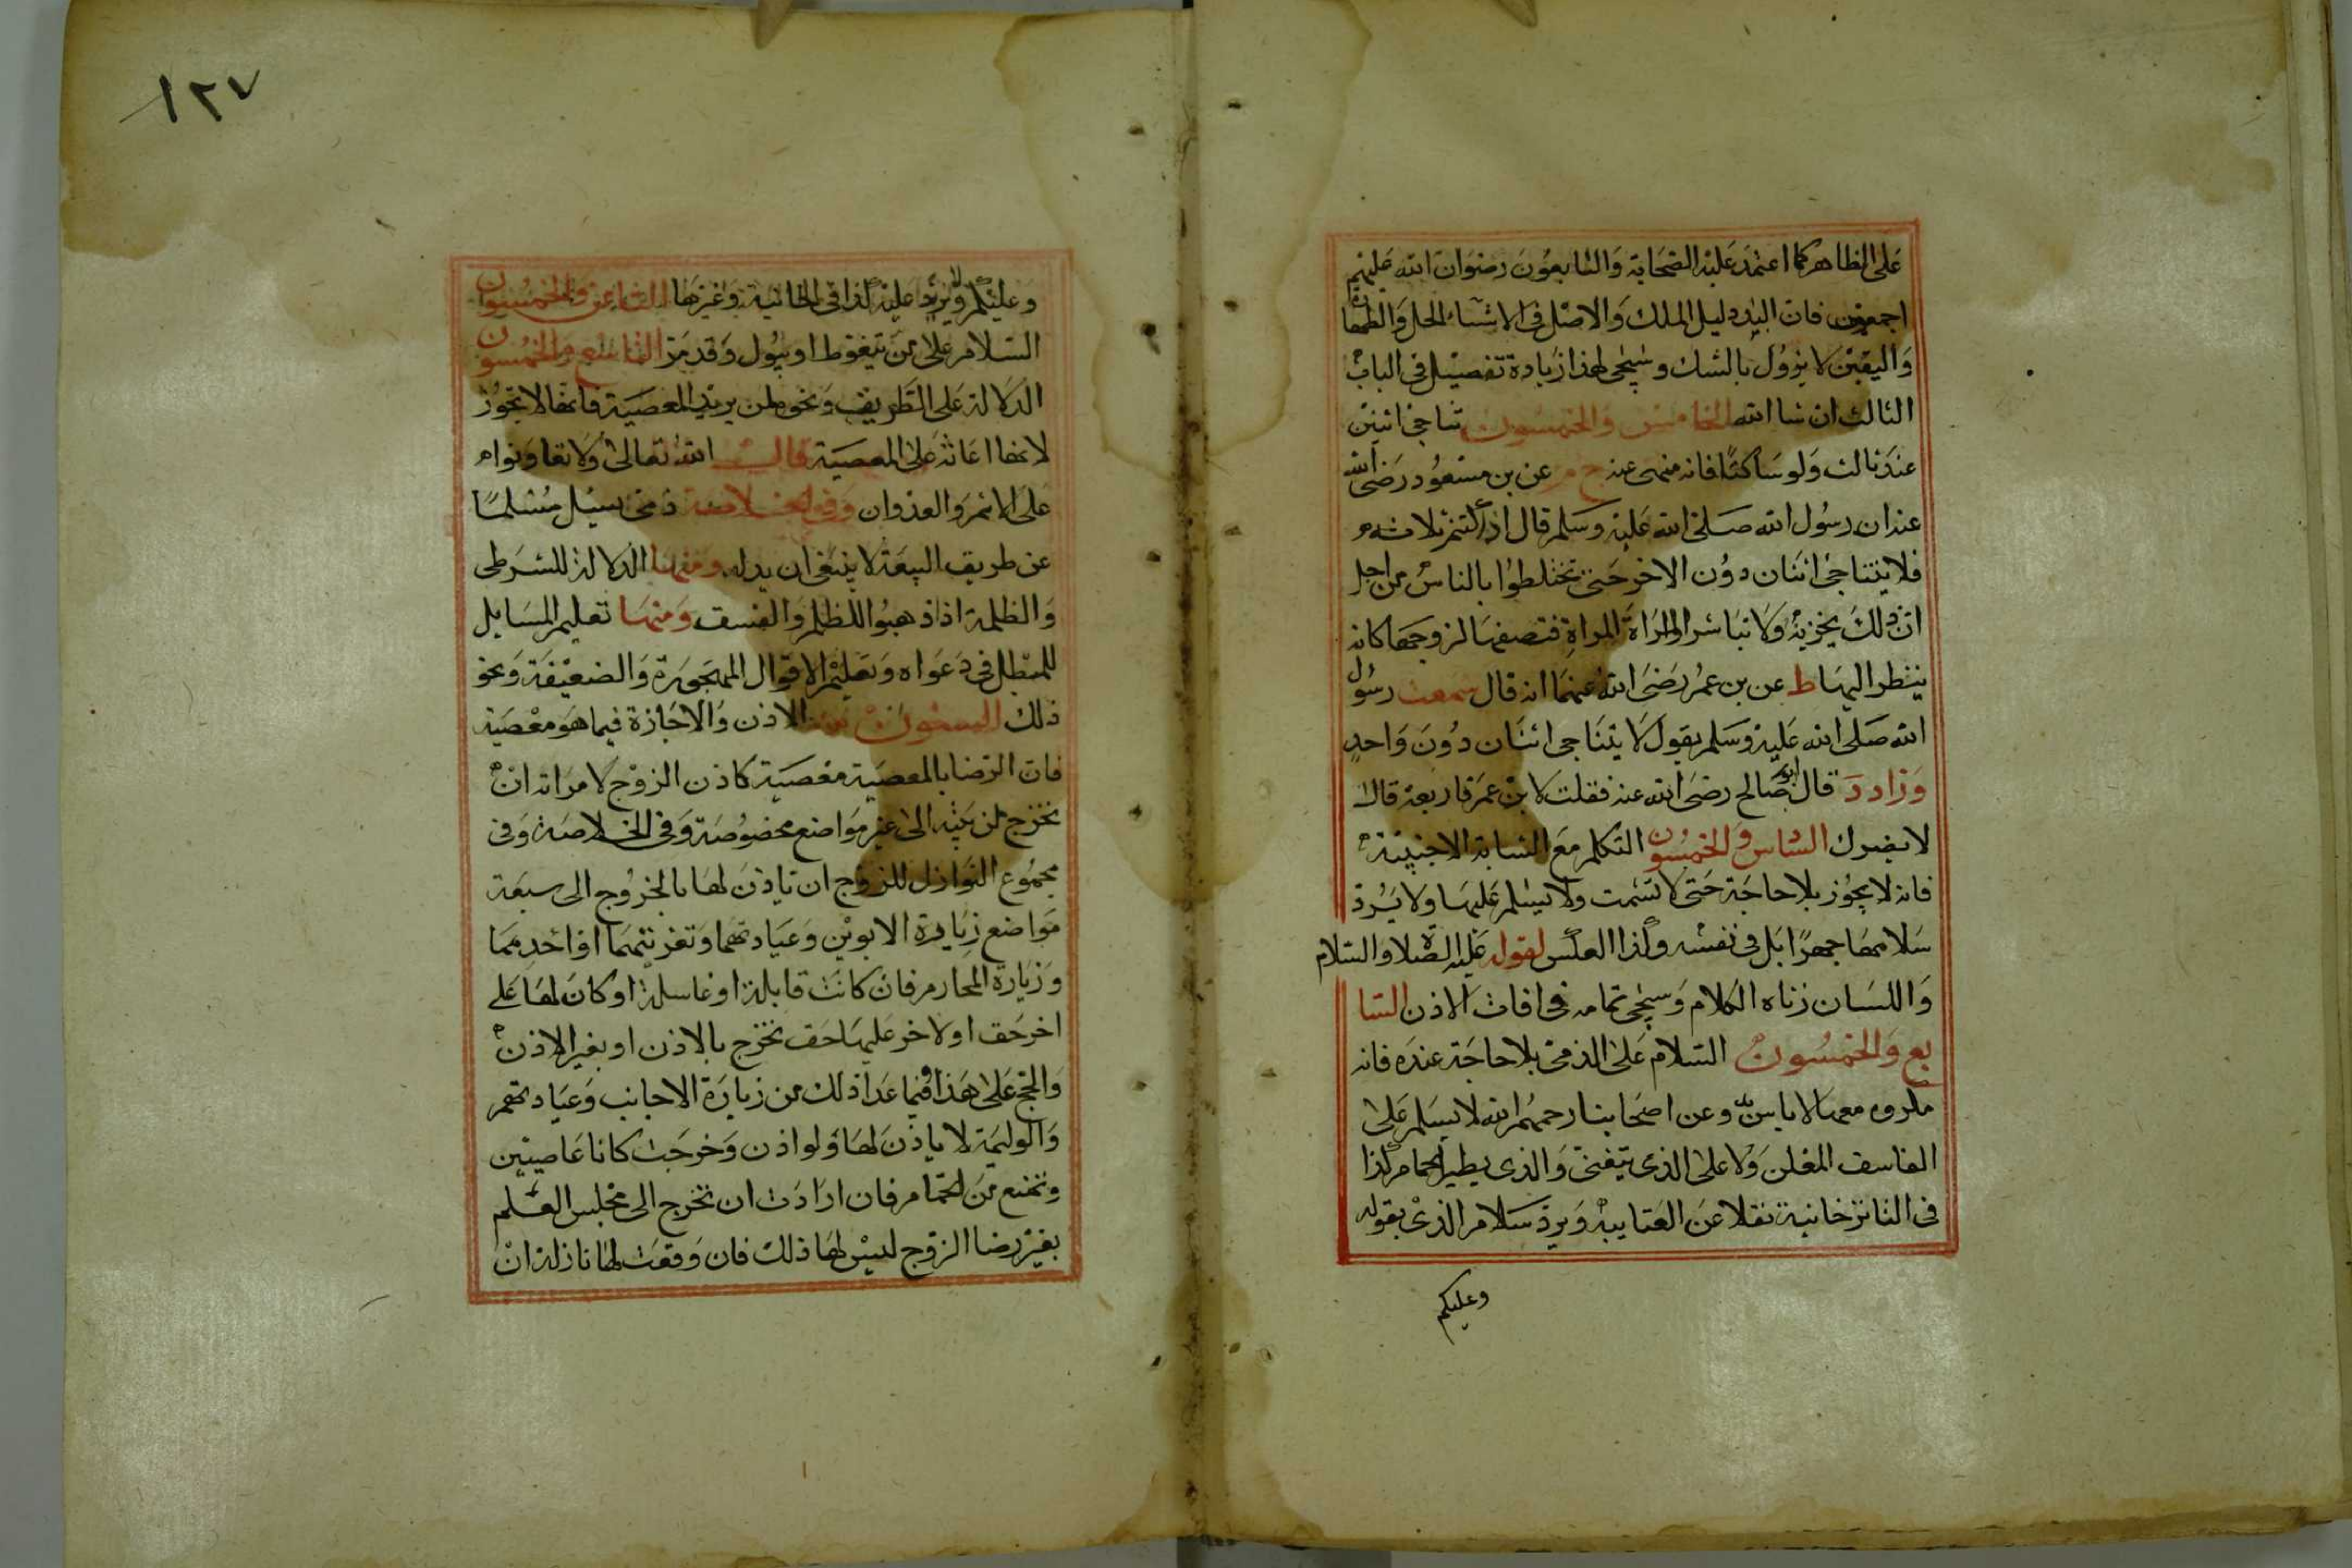 على الظاهر كما اعتمد عليه الصحابة والتابعون رضوان الله عليهم
اجمعين فان اليد دليل الملك والاصل فى الاشياء الحل والطهارة
واليقين لا يزول بالشك وسيجى لهذا زيادة تفصيل فى الباب
الثالث ان شا الله الخامس والخمسون تناجى اثنين
عند ثالث ولو ساكتا فانه منهى عنه خ م عن بن مسعود رضى الله
عنه ان رسول الله صلى الله عليه وسلم قال اذا كنتم ثلاثة
فلا يتناجى اثنان دون الاخر حتى تختلطوا بالناس من اجل
ان ذلك يحزنه ولا تباشر المراة المراة فتصفها لزوجها كانه
ينظر اليها ط عن بن عمر رضى الله عنهما انه قال سمعت رسول
الله صلى الله عليه وسلم يقول لا يتناجى اثنان دون واحد
وزاد د قال ابو صالح رضى الله عنه فقلت لابن عمر فاربعة قال
لا يضرك السادس والخمسون التكلم مع الشابة الاجنبية
فانه لا يجوز بلا حاجة حتى لا تشمت ولا يسلم عليها ولا يرد
سلامها جهرا بل فى نفسه وكذا العكس لقوله عليه الصلاة والسلام
واللسان زناه الكلام وسيجى تمامه فى افات الاذن السا
بع والخمسون السلام على الذمى بلا حاجة عنده فانه
مكروه معها لا باس وعن اصحابنا رحمهم الله لا يسلم على
الفاسق المعلن ولا على الذى يتغنى والذى يطير الحمام كذا
فى التاترخانية نقلا عن العتابيه ويرد سلام الذى بقوله
وعليكم
١٢٧
وعليكم ولا يزيد عليه كذا فى الخانية وغيرها الثامن والخمسون
السلام على من يتغوط او يبول وقد مر التاسع والخمسون
الدلالة على الطريق ونحوه لمن يريد المعصية فانها لا تجوز
لانها اعانة على المعصية قال الله تعالى ولا تعاونوا
على الاثم والعدوان وفى الخلاصة ذمى يسئل مسلما
عن طريق البيعة لا ينبغى ان يدله ومنها الدلالة للشرطى
والظلمة اذا ذهبوا للظلم والفسق ومنها تعليم المسايل
للمبطل فى دعواه وتعليم الاقوال المهجورة والضعيفة ونحو
ذلك الستون الاذن والاجازة فيما هو معصية
فان الرضا بالمعصية معصية كاذن الزوج لامراته ان
تخرج من بيته الى غير مواضع مخصوصة وفى الخلاصة وفى
مجموع النوازل للزوج ان ياذن لها بالخروج الى سبعة
مواضع زيارة الابوين وعيادتهما وتعزيتهما او احدهما
وزيارة المحارم فان كانت قابلة او غاسلة او كان لها على
اخر حق او لاخر عليها حق تخرج بالاذن او بغير الاذن
والحج على هذا وفيما عدا ذلك من زيارة الاجانب وعيادتهم
والوليمة لا ياذن لها ولو اذن وخرجت كانا عاصيين
وتمنع من الحمام فان ارادت ان تخرج الى مجلس العلم
بغير رضا الزوج ليس لها ذلك فان وقعت لها نازلة ان